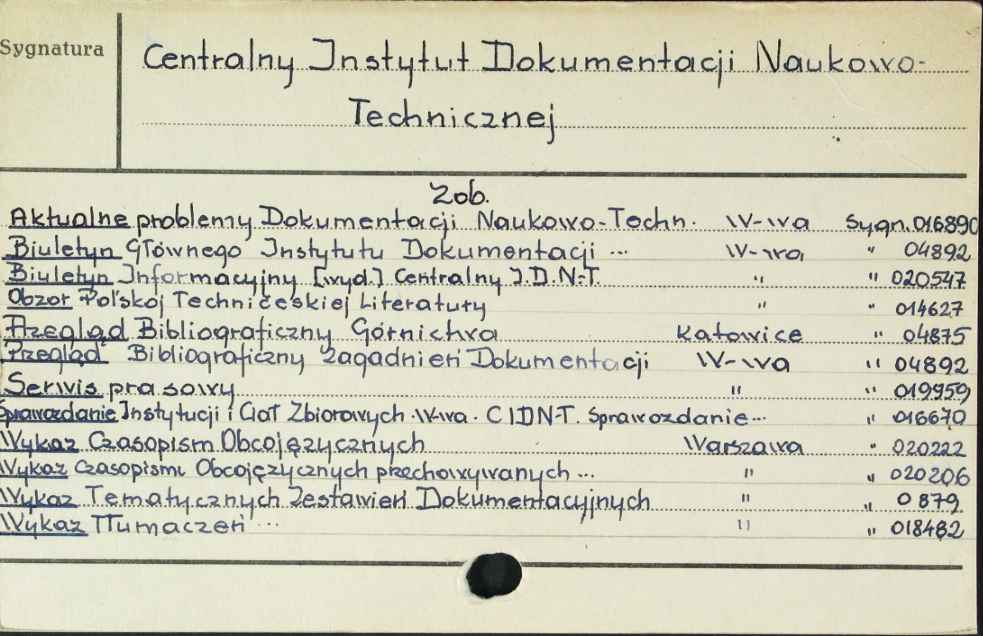 Sygnatura
Centralny Instytut Dokumentacji Naukowo-
Technicznej
Zob.
Aktualne problemy Dokumentacji Naukowo-Techn. W-wa Sygn. 016890
Biuletyn Głównego Instytutu Dokumentacji ... W-wa " 04892
Biuletyn Informacyjny [wyd.] Centralny I.D.N-T. " " 020547
Obzor Pol'skoj Techničeskiej Literatury " " 014627
Przegląd Bibliograficzny Górnictwa Katowice " 04875
Przegląd Bibliograficzny Zagadnień Dokumentacji W-wa " 04892
Serwis prasowy " " 019959
Sprawozdanie Instytucji i Ciał Zbiorowych. W-wa. CIDN-T. Sprawozdanie... " 016670
Wykaz Czasopism Obcojęzycznych Warszawa " 020222
Wykaz Czasopism Obcojęzycznych przechowywanych ... " " 020206
Wykaz Tematycznych Zestawień Dokumentacyjnych " " 0879
Wykaz Tłumaczeń ... " " 018482